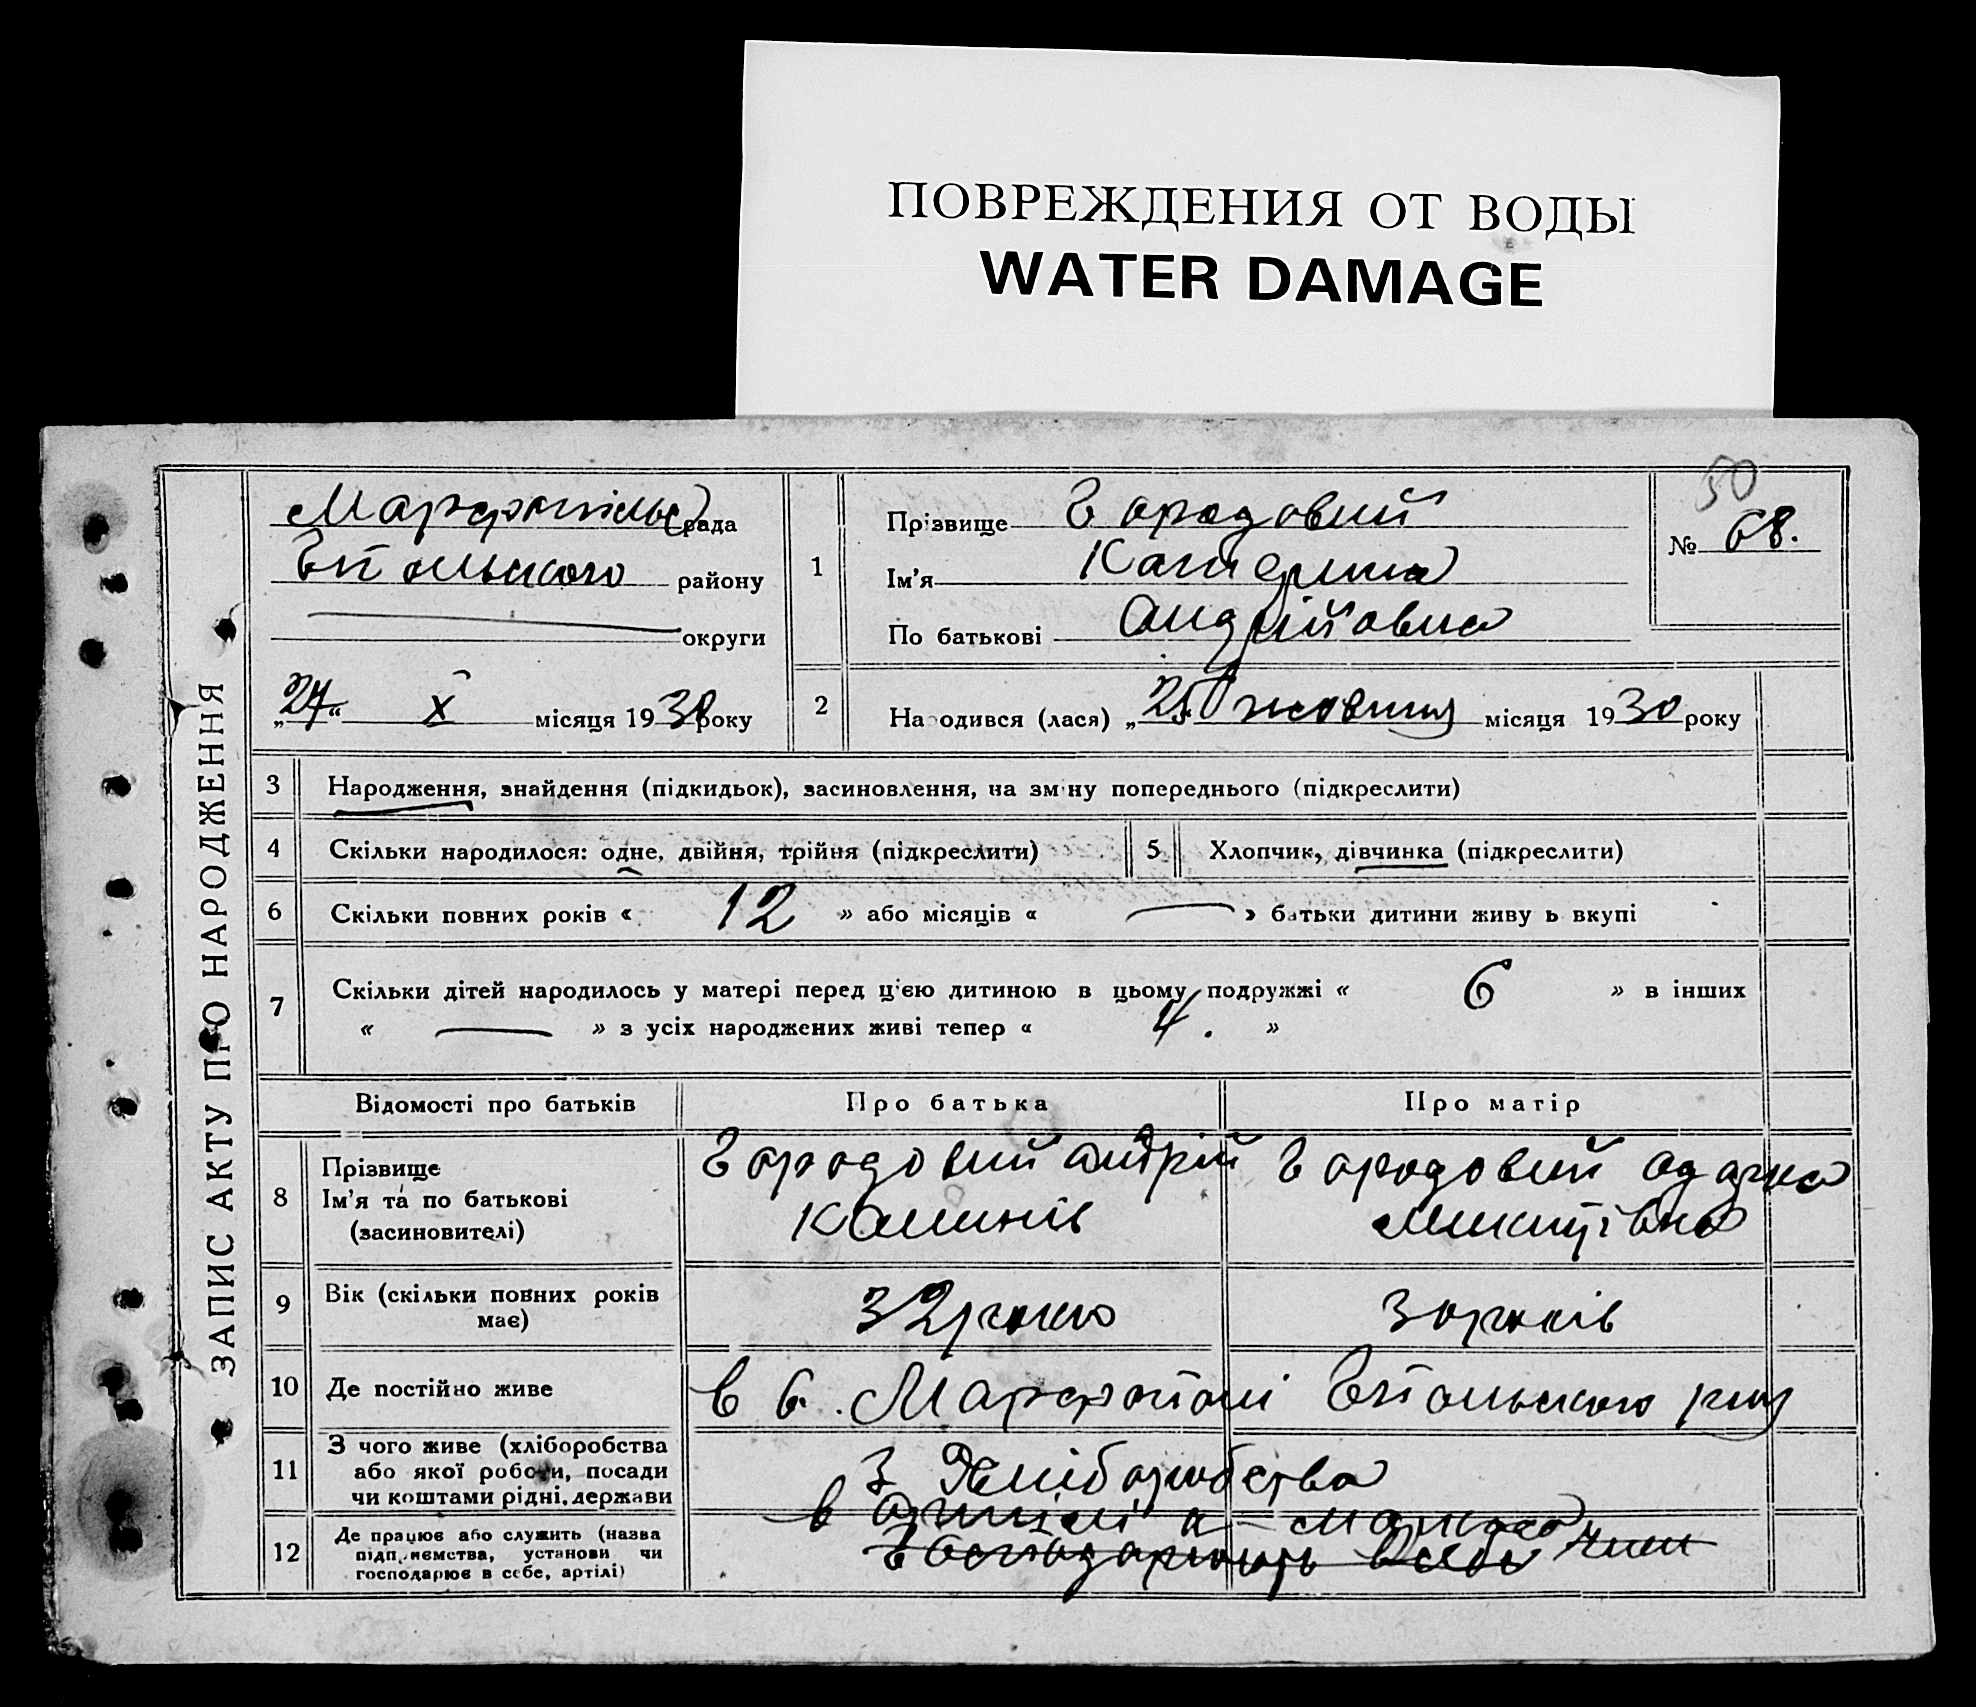 ПОВРЕЖДЕНИЯ ОТ ВОДЫ
WATER DAMAGE
ЗАПИС АКТУ ПРО НАРОДЖЕННЯ
рада
району
округи
„27“ X місяця 1930 року
50
№ 68.
1
Прізвище Городовий
Ім'я Катерина
По батькові Андрійовна
2
Народився (лася) „25 жовтня місяця 1930 року
3 Народження, знайдення (підкидьок), засиновлення, на зміну попереднього (підкреслити)
4 Скільки народилося: одне, двійня, трійня (підкреслити)
5 Хлопчик, дівчинка (підкреслити)
6 Скільки повних років « 12 » або місяців « — » батьки дитини живу ь вкупі
7 Скільки дітей народилось у матері перед ц'єю дитиною в цьому подружжі « 6 » в інших
« — » з усіх народжених живі тепер « 4. »
Відомості про батьків Про батька Про матір
8 Прізвище
Ім'я та по батькові
(засиновителі)
Городовий Андрій
Городовий
9 Вік (скільки повних років
має)
32 роки
30 років
10 Де постійно живе
в с.
11 З чого живе (хліборобства
або якої роботи, посади
чи коштами рідні, держави
З Хліборобства
12 Де працює або служить (назва
підприємства, установи чи
господарює в себе, артілі)
в артілі
Господарюють в себе